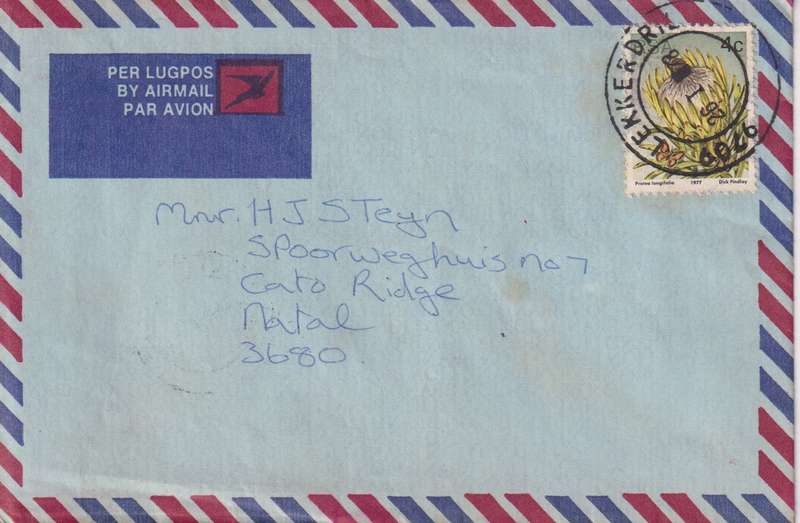 PER LUGPOS
BY AIRMAIL
PAR AVION
4c
LEKKERDRIF
Protea longifolia 1977 Dick Findlay
Mnr. H J STeyn
Spoorweghuis no 7
Cato Ridge
Natal
3680.